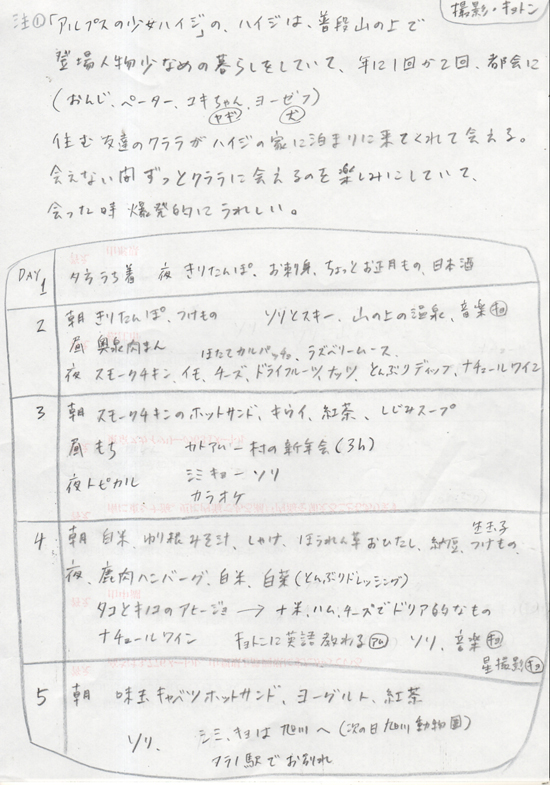 撮影・キョトン
注①「アルプスの少女ハイジ」の、ハイジは、普段山の上で
登場人物少なめの暮らしをしていて、年に1回か2回、都会に
(おんじ、ペーター、ユキちゃん、ヨーゼフ)
ヤギ 犬
住む友達のクララがハイジの家に泊まりに来てくれて会える。
会えない間ずっとクララに会えるのを楽しみにしていて、
会った時爆発的にうれしい。
DAY 1 夕方うち着 夜 きりたんぽ、お刺身、ちょっとお正月もの、日本酒
2 朝 きりたんぽ、つけもの ソリとスキー、山の上の温泉、音楽 キョ
昼 肉まん ほたてカルパッチョ、ラズベリームース、
夜 スモークチキン、イモ、チーズ、ドライフルーツ、ナッツ、とんぶりディップ、ナチュールワイン
3 朝 スモークチキンのホットサンド、キウイ、紅茶、しじみスープ
昼 もち カトアムー村の新年会(3h)
夜 トピカル シミ キョー ソリ
カラオケ
4 朝 白米、ゆり根みそ汁、しゃけ、ほうれん草おひたし、納豆、つけもの
夜、鹿肉ハンバーグ、白米、白菜(とんぶりドレッシング)
タコとキノコのアヒージョ → +米、ハム、チーズでドリア的なもの
ナチュールワイン キョトンに英語教わる アム ソリ、音楽 キョ
星撮影 キョ
5 朝 味玉キャベツホットサンド、ヨーグルト、紅茶
ソリ、 シミ、キョは旭川へ(次の日旭川動物園)
フラノ駅でお別れ